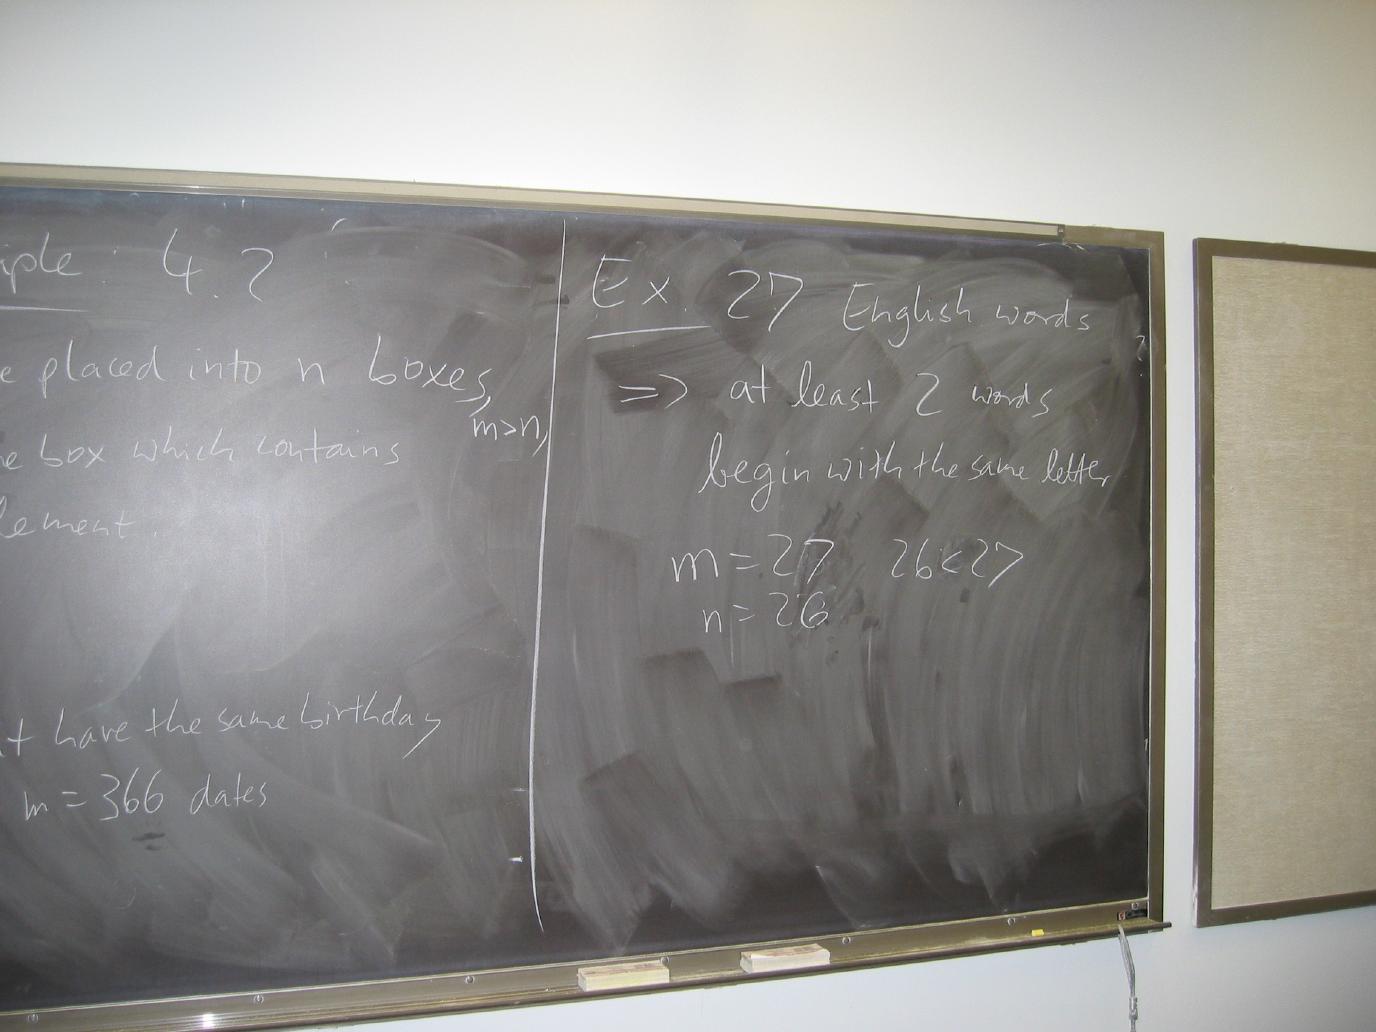 iple 4.2
e placed into n boxes,
m>n,
e box which contains
lement.
t have the same birthday
m = 366 dates
Ex. 27 English words
=> at least 2 words
begin with the same letter
m = 27 26<27
n = 26